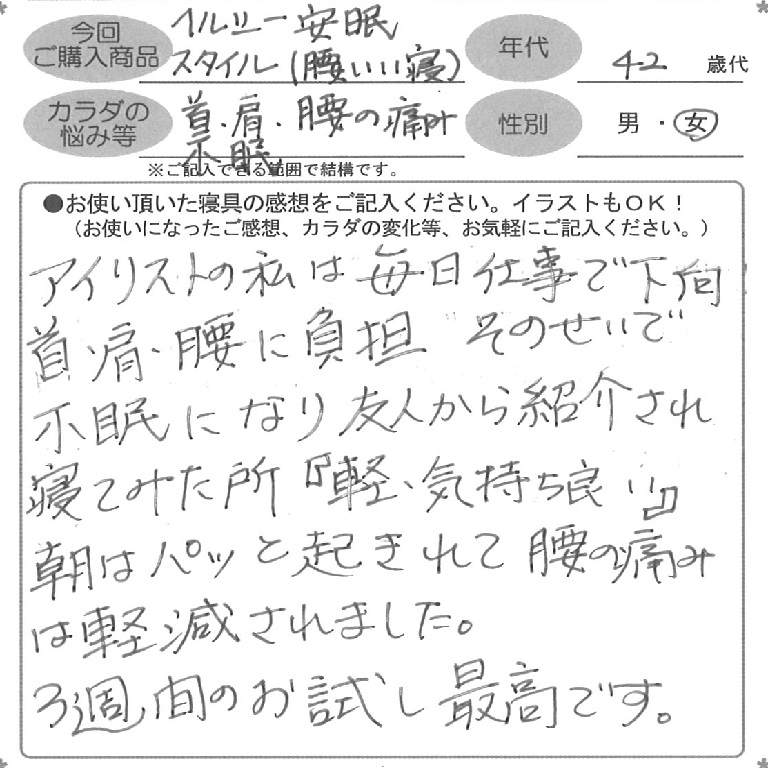 今回
ご購入商品
イルミー安眠
スタイル(腰いい寝)
年代
42 歳代
カラダの
悩み等
首・肩・腰の痛み
不眠
性別
男・女
※ご記入できる範囲で結構です。
●お使い頂いた寝具の感想をご記入ください。イラストもOK!
(お使いになったご感想、カラダの変化等、お気軽にご記入ください。)
アイリストの私は毎日仕事で下向
首・肩・腰に負担 そのせいで
不眠になり友人から紹介され
寝てみた所『軽、気持ち良い』
朝はパッと起きれて腰の痛み
は軽減されました。
3週間のお試し最高です。